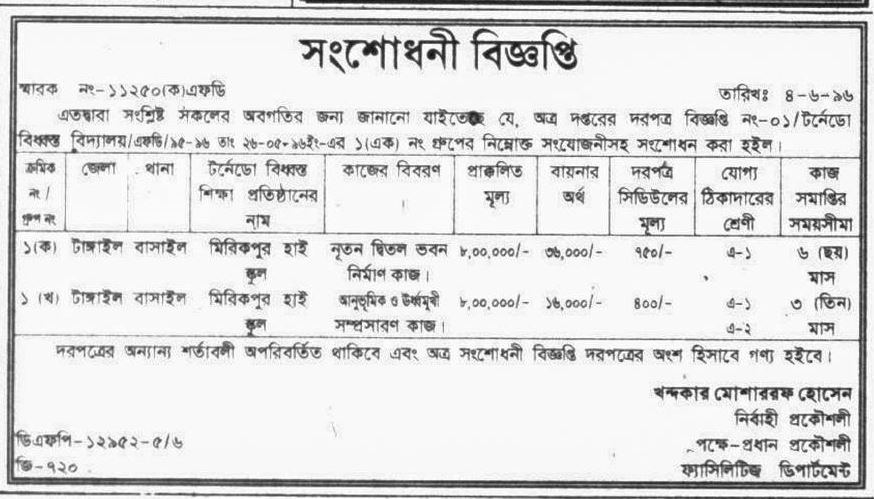 সংশোধনী বিজ্ঞপ্তি
স্মারক নং-১১২৫০(ক)এফডি তারিখঃ ৪-৬-৯৬
এতদ্বারা সংশ্লিষ্ট সকলের অবগতির জন্য জানানো যাইতেছে যে, অত্র দপ্তরের দরপত্র বিজ্ঞপ্তি নং-০১/টর্নেডো
বিধ্বস্ত বিদ্যালয়/এফডি/৯৫-৯৬ তাং ২৬-০৫-৯৬ইং-এর ১(এক) নং গ্রুপের নিম্নোক্ত সংযোজনীসহ সংশোধন করা হইল।
ক্রমিক জেলা থানা টর্নেডো বিধ্বস্ত কাজের বিবরণ প্রাক্কলিত বায়নার দরপত্র যোগ্য কাজ
নং / শিক্ষা প্রতিষ্ঠানের । মূল্য অর্থ সিডিউলের ঠিকাদারের সমাপ্তির
গ্রুপ নং নাম মূল্য শ্রেণী সময়সীমা
১(ক) টাঙ্গাইল বাসাইল মিরিকপুর হাই নূতন দ্বিতল ভবন ৮,০০,০০০/- ৩৬,০০০/- ৭৫০/- এ-১ ৬ (ছয়)
স্কুল নির্মাণ কাজ। মাস
১ (খ) টাঙ্গাইল বাসাইল মিরিকপুর হাই আনুভূমিক ও উর্ধ্বমুখী ৮,০০,০০০/- ১৬,০০০/- ৪০০/- এ-১ ৩ (তিন)
স্কুল সম্প্রসারণ কাজ। এ-২ মাস
দরপত্রের অন্যান্য শর্তাবলী অপরিবর্তিত থাকিবে এবং অত্র সংশোধনী বিজ্ঞপ্তি দরপত্রের অংশ হিসাবে গণ্য হইবে।
খন্দকার মোশাররফ হোসেন
নির্বাহী প্রকৌশলী
ডিএফপি-১২৯৫২-৫/৬ পক্ষে-প্রধান প্রকৌশলী
জি-৭২০ ফ্যাসিলিটিজ ডিপার্টমেন্ট